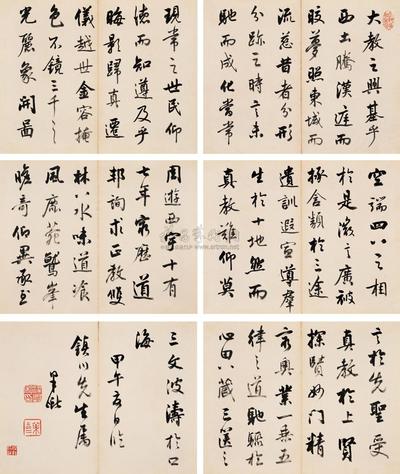 大教之興基乎
西土騰漢庭而
皎夢照東域而
流慈昔者分形
分跡之時言未
馳而成化當常
現常之世民仰
德而知遵及乎
晦影歸真遷
儀越世金容掩
色不鏡三千之
光麗象開圖
空端四八之相
於是微言廣被
拯含類於三途
遺訓遐宣導群
生於十地然而
真教難仰莫
周遊西宇十有
七年窮歷道
邦詢求正教雙
林八水味道飡
風鹿菀鷲峯
瞻奇仰異承至
言於先聖受
真教於上賢
探賾妙門精
窮奧業一乘五
律之道馳驟於
心田八藏三篋
之文波濤於口
海
甲午夏日臨
鎮川先生屬